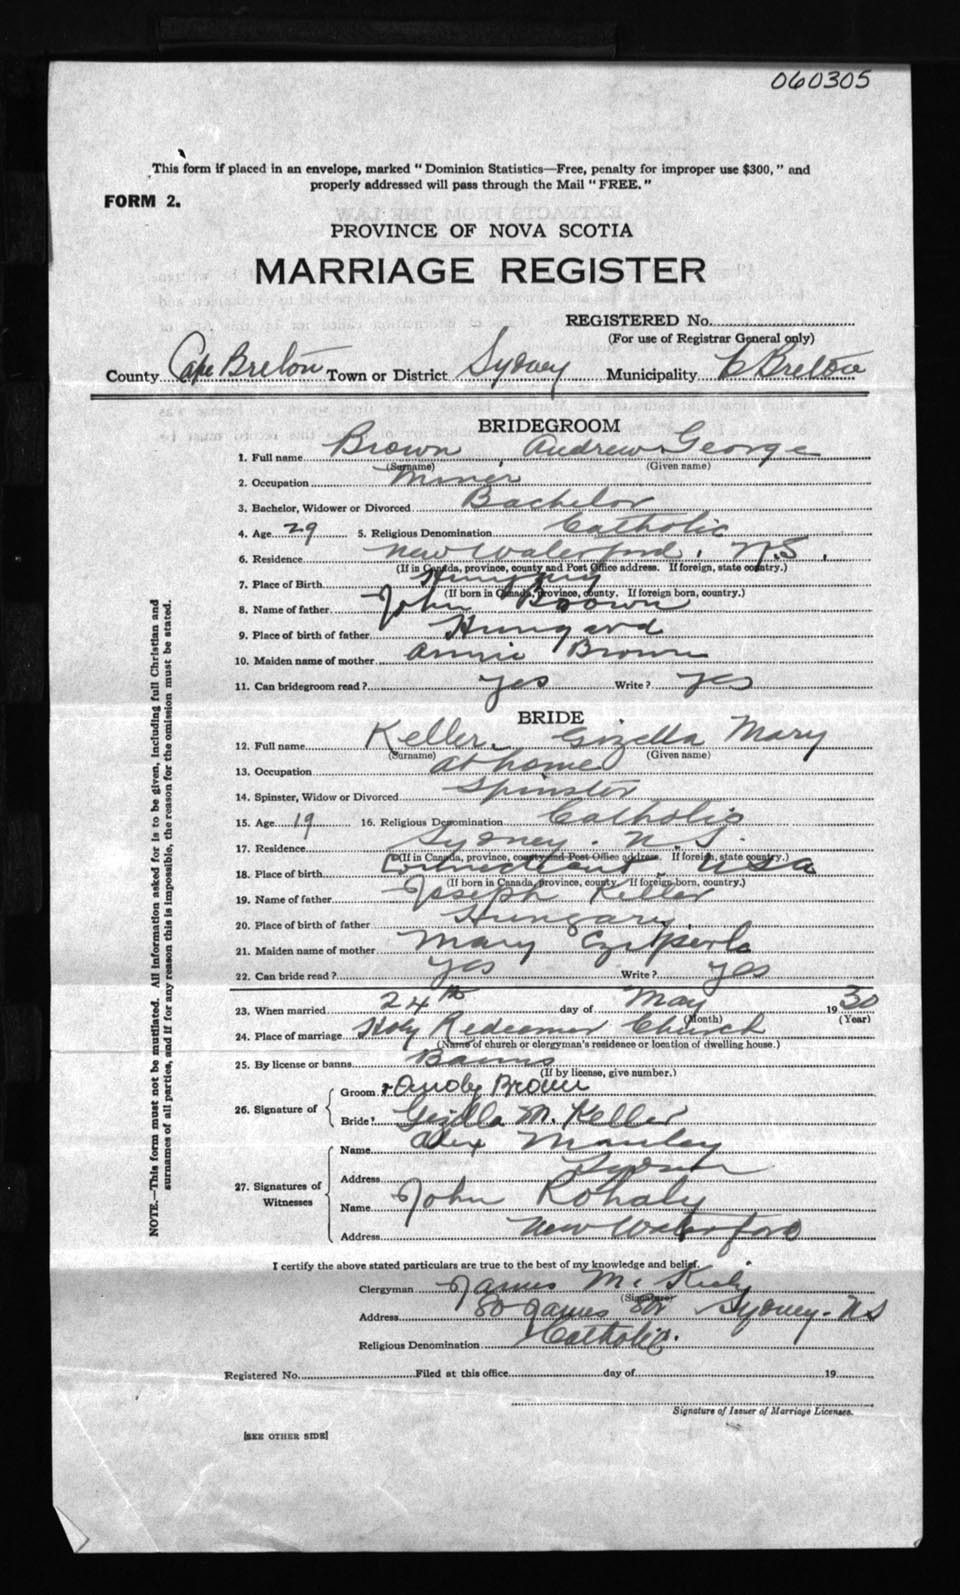 060305
This form if placed in an envelope, marked "Dominion Statistics—Free, penalty for improper use $300," and
properly addressed will pass through the Mail "FREE."
FORM 2.
PROVINCE OF NOVA SCOTIA
MARRIAGE REGISTER
REGISTERED No.
(For use of Registrar General only)
County Cape Breton Town or District Sydney Municipality C Breton
BRIDEGROOM
1. Full name Brown, Andrew George
(Surname) (Given name)
2. Occupation Miner
3. Bachelor, Widower or Divorced Bachelor
4. Age 29 5. Religious Denomination Catholic
6. Residence New Waterford, N.S.
(If in Canada, province, county and Post Office address. If foreign, state country.)
7. Place of Birth Hungary
(If born in Canada, province, county. If foreign born, country.)
8. Name of father John Brown
9. Place of birth of father
10. Maiden name of mother Annie Brown
11. Can bridegroom read? yes Write? yes
BRIDE
12. Full name Keller, Gizella Mary
(Surname) (Given name)
13. Occupation at home
14. Spinster, Widow or Divorced Spinster
15. Age 19 16. Religious Denomination Catholic
17. Residence Sydney. N.S.
(If in Canada, province, county and Post Office address. If foreign, state country.)
18. Place of birth Connecticut USA
(If born in Canada, province, county. If foreign born, country.)
19. Name of father Joseph Keller
20. Place of birth of father Hungary
21. Maiden name of mother Mary
22. Can bride read? yes Write? yes
23. When married 24th day of May 1930
(Month) (Year)
24. Place of marriage Holy Redeemer Church
(Name of church or clergyman's residence or location of dwelling house.)
25. By license or banns Banns
(If by license, give number.)
26. Signature of
Groom Andy Brown
Bride Gizella M. Keller
27. Signatures of Witnesses
Name Alex Manley
Address Sydney
Name John Rohaly
Address New Waterford
I certify the above stated particulars are true to the best of my knowledge and belief.
Clergyman James
(Signature)
Address 80 James Str Sydney. NS
Religious Denomination Catholic.
Registered No. Filed at this office day of 19
Signature of Issuer of Marriage Licenses.
[SEE OTHER SIDE]
NOTE.—This form must not be mutilated. All information asked for is to be given, including full Christian and
surnames of all parties, and if for any reason this is impossible, the reason for the omission must be stated.